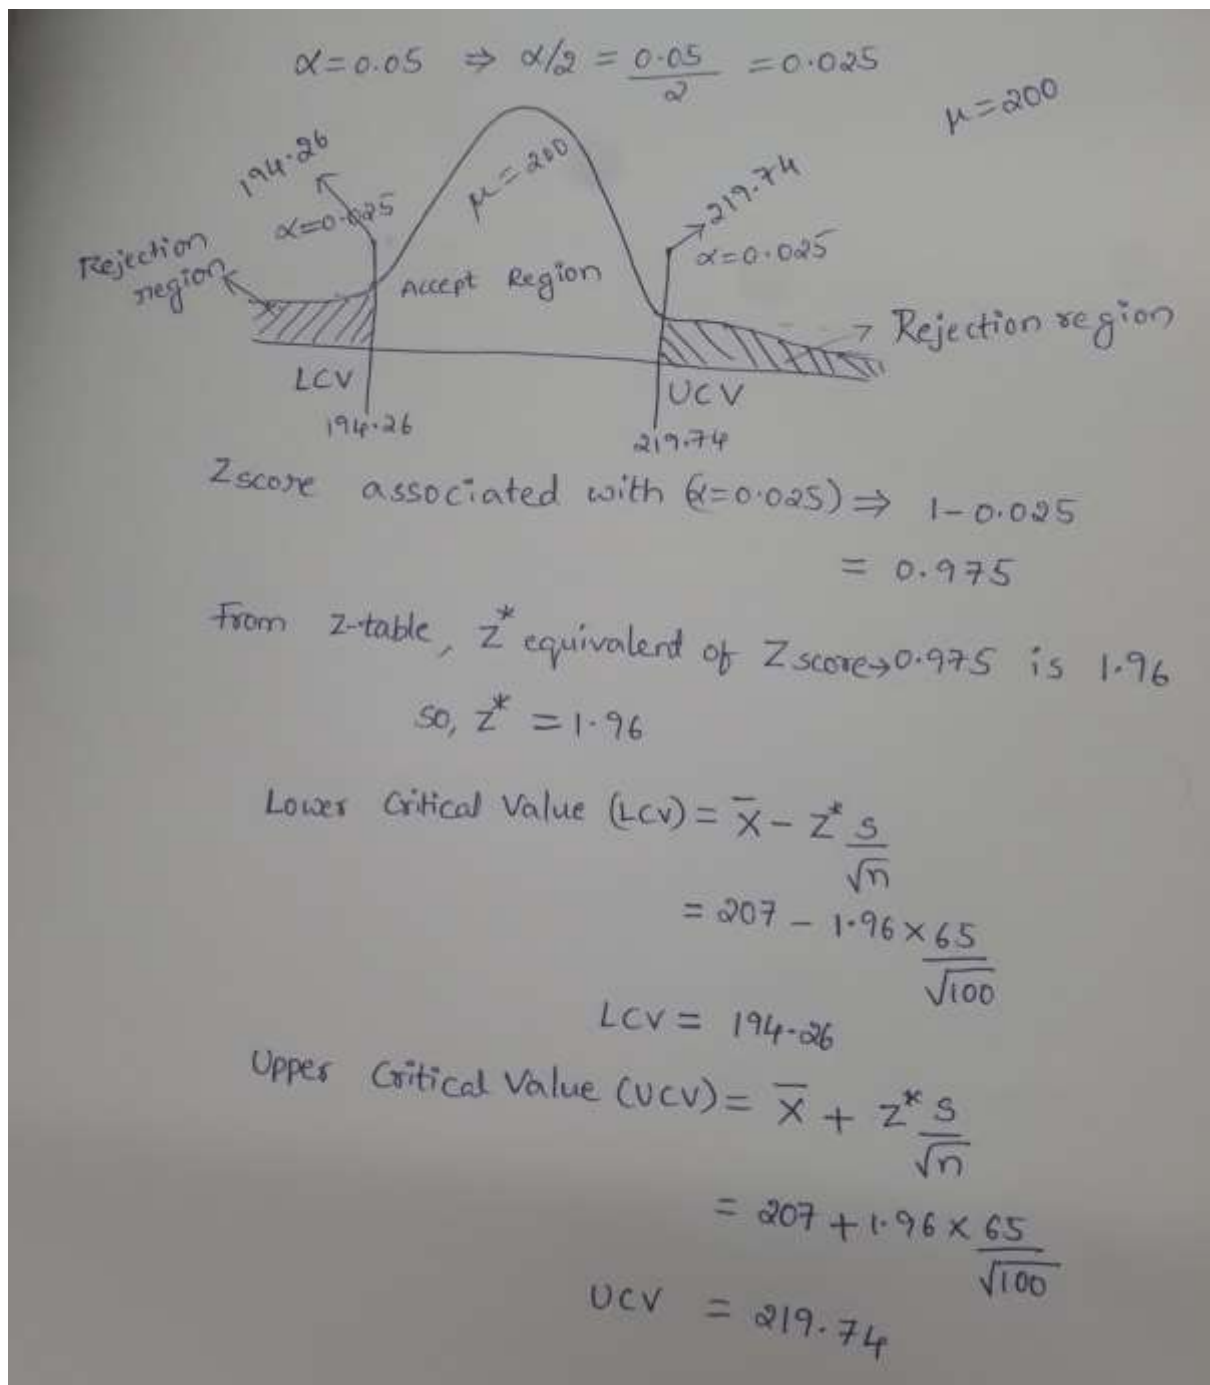 α=0.05 ⇒ α/2 = 0.05/2 = 0.025
μ=200
194.26
α=0.025
μ=200
219.74
α=0.025
Rejection
region
Accept Region
Rejection region
LCV
UCV
194.26
219.74
Z score associated with (α=0.025) ⇒ 1-0.025
= 0.975
From z-table, z* equivalend of Z score→0.975 is 1.96
so, z* = 1.96
Lower Critical Value (LCV) = x̅ - z* s/√n
= 207 - 1.96 × 65/√100
LCV = 194.26
Upper Critical Value (UCV) = x̅ + z* s/√n
= 207 + 1.96 × 65/√100
UCV = 219.74